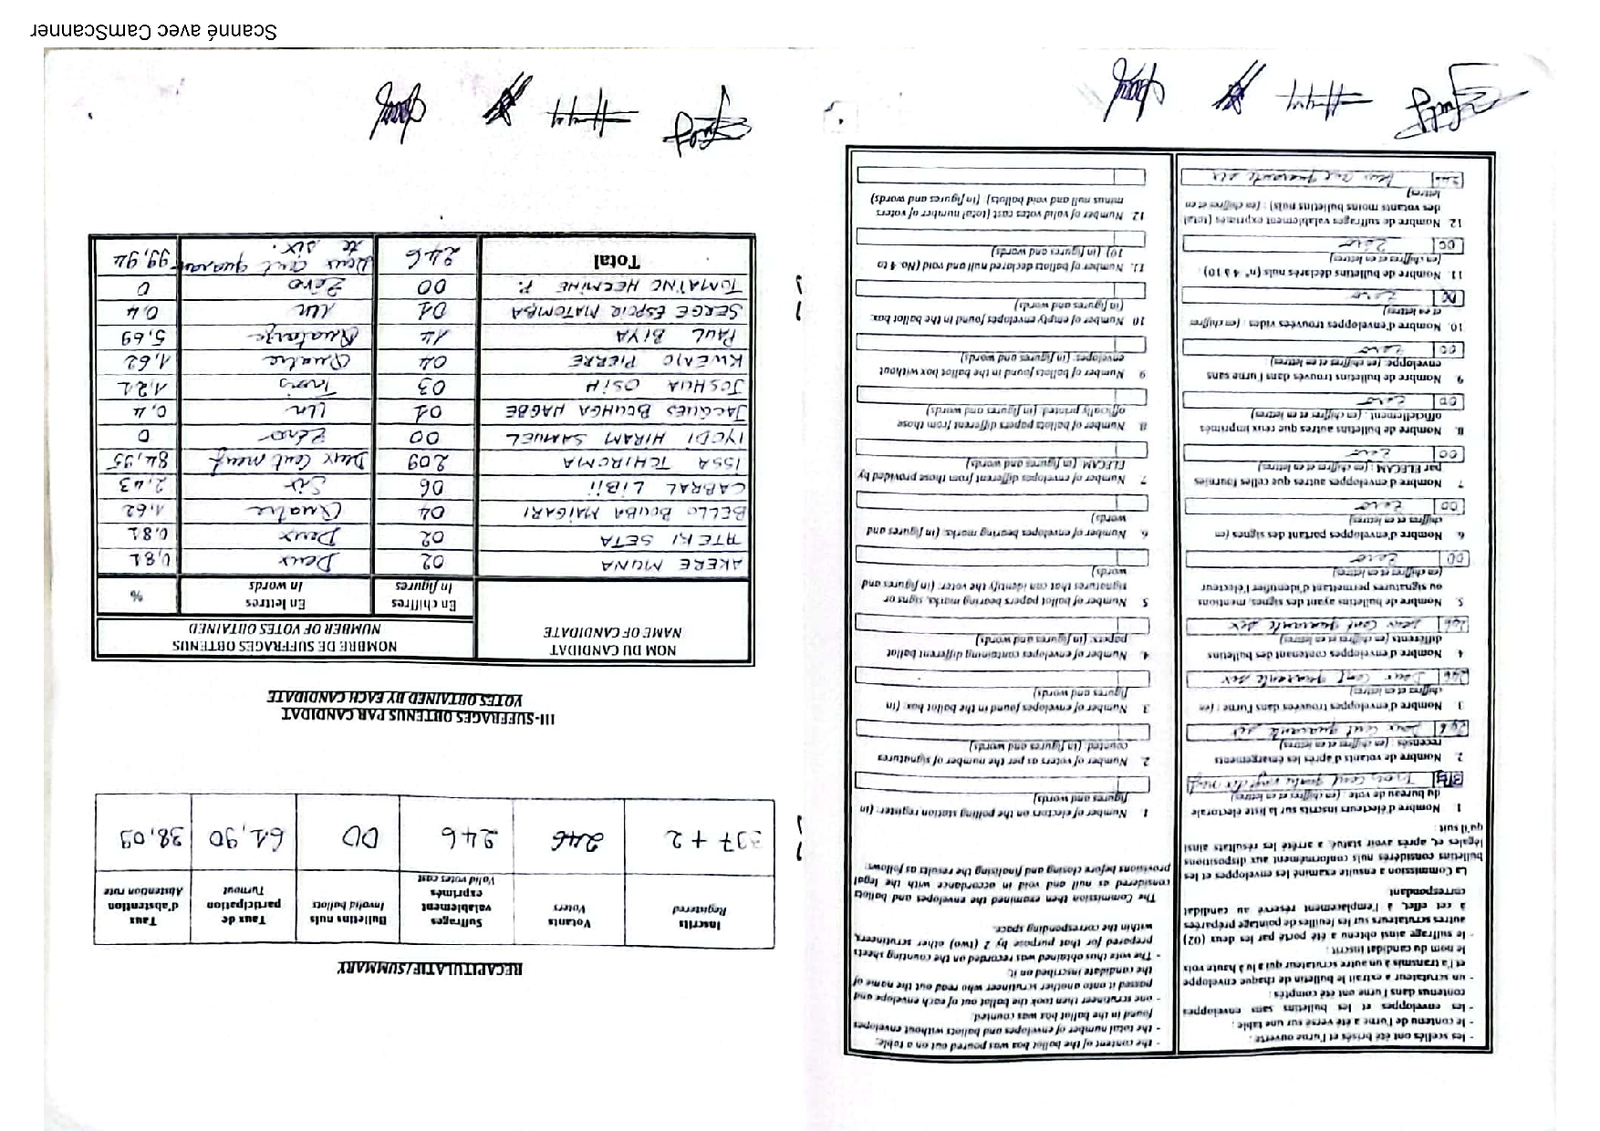 - les scellés ont été brisés et l'urne ouverte ;
- le contenu de l'urne a été versé sur une table ;
- les enveloppes et les bulletins sans enveloppes
contenus dans l'urne ont été comptés ;
- un scrutateur a extrait le bulletin de chaque enveloppe
et l'a transmis à un autre scrutateur qui a lu à haute voix
le nom du candidat inscrit ;
- le suffrage ainsi obtenu a été porté par les deux (02)
autres scrutateurs sur les feuilles de pointage préparées
à cet effet, à l'emplacement réservé au candidat
correspondant
La Commission a ensuite examiné les enveloppes et les
bulletins considérés nuls conformément aux dispositions
légales et, après avoir statué, a arrêté les résultats ainsi
qu'il suit :
1 Nombre d'électeurs inscrits sur la liste électorale
du bureau de vote : (en chiffres et en lettres)
2. Nombre de votants d'après les émargements
recensés : (en chiffres et en lettres)
246 Deux cent quarante six
3 Nombre d'enveloppes trouvées dans l'urne : (en
chiffres et en lettres)
246 Deux cent quarante six
4 Nombre d'enveloppes contenant des bulletins
différents (en chiffres et en lettres)
246 Deux cent quarante six
5. Nombre de bulletins ayant des signes, mentions
ou signatures permettant d'identifier l'électeur
(en chiffres et en lettres)
00 Zero
6 Nombre d'enveloppes portant des signes (en
chiffres et en lettres)
00 Zero
7 Nombre d'enveloppes autres que celles fournies
par ELECAM : (en chiffres et en lettres)
00 Zero
8. Nombre de bulletins autres que ceux imprimés
officiellement : (en chiffres et en lettres)
00 Zero
9 Nombre de bulletins trouvés dans l'urne sans
enveloppe. (en chiffres et en lettres)
00 Zero
10. Nombre d'enveloppes trouvées vides : (en chiffres
et en lettres)
00 Zero
11 Nombre de bulletins déclarés nuls (n° 4 à 10) :
(en chiffres et en lettres)
00 Zero
12 Nombre de suffrages valablement exprimés (total
des votants moins bulletins nuls) : (en chiffres et en
lettres)
246 Deux cent quarante six
- the content of the ballot box was poured out on a table;
- the total number of envelopes and ballots without envelopes
found in the ballot box was counted;
- one scrutineer then took the ballot out of each envelope and
passed it onto another scrutineer who read out the name of
the candidate inscribed on it;
- The vote thus obtained was recorded on the counting sheets
prepared for that purpose by 2 (two) other scrutineers,
within the corresponding space.
The Commission then examined the envelopes and ballots
considered as null and void in accordance with the legal
provisions before closing and finalising the results as follows:
1 Number of electors on the polling station register: (in
figures and words)
2. Number of voters as per the number of signatures
counted: (in figures and words)
3 Number of envelopes found in the ballot box: (in
figures and words)
4. Number of envelopes containing different ballot
papers: (in figures and words)
5 Number of ballot papers bearing marks, signs or
signatures that can identify the voter: (in figures and
words)
6. Number of envelopes bearing marks: (in figures and
words)
7. Number of envelopes different from those provided by
ELECAM: (in figures and words)
8. Number of ballots papers different from those
officially printed: (in figures and words)
9 Number of ballots found in the ballot box without
envelopes: (in figures and words)
10 Number of empty envelopes found in the ballot box:
(in figures and words)
11. Number of ballots declared null and void (No. 4 to
10) (in figures and words)
12. Number of valid votes cast (total number of voters
minus null and void ballots) (in figures and words)
RECAPITULATIF/SUMMARY
Inscrits
Registered
Votants
Voters
Suffrages
valablement
exprimés
Valid votes cast
Bulletins nuls
Invalid ballots
Taux de
participation
Turnout
Taux
d'abstention
Abstention rate
397 + 2 246 246 00 61,90 38,09
III-SUFFRAGES OBTENUS PAR CANDIDAT
VOTES OBTAINED BY EACH CANDIDATE
NOM DU CANDIDAT
NAME OF CANDIDATE
NOMBRE DE SUFFRAGES OBTENUS
NUMBER OF VOTES OBTAINED
En chiffres
In figures
En lettres
In words
%
AKERE MUNA 02 Deux 0,81
ATEKI SETA 02 Deux 0,81
BELLO BOUBA MAIGARI 04 Quatre 1,62
CABRAL LIBII 06 Six 2,43
ISSA TCHIROMA 209 Deux Cent neuf 84,95
IYODI HIRAM SAMUEL 00 Zéro 0
JACQUES BOUHGA HAGBE 01 Un 0,4
JOSHUA OSIH 03 Trois 1,21
KWEMO PIERRE 04 Quatre 1,62
PAUL BIYA 14 Quatorze 5,69
SERGE ESPOIR MATOMBA 01 Un 0,4
TOMAINO HERMINE P. 00 Zéro 0
Total 246 Deux cent quaran
te six. 99,94
Scanné avec CamScanner